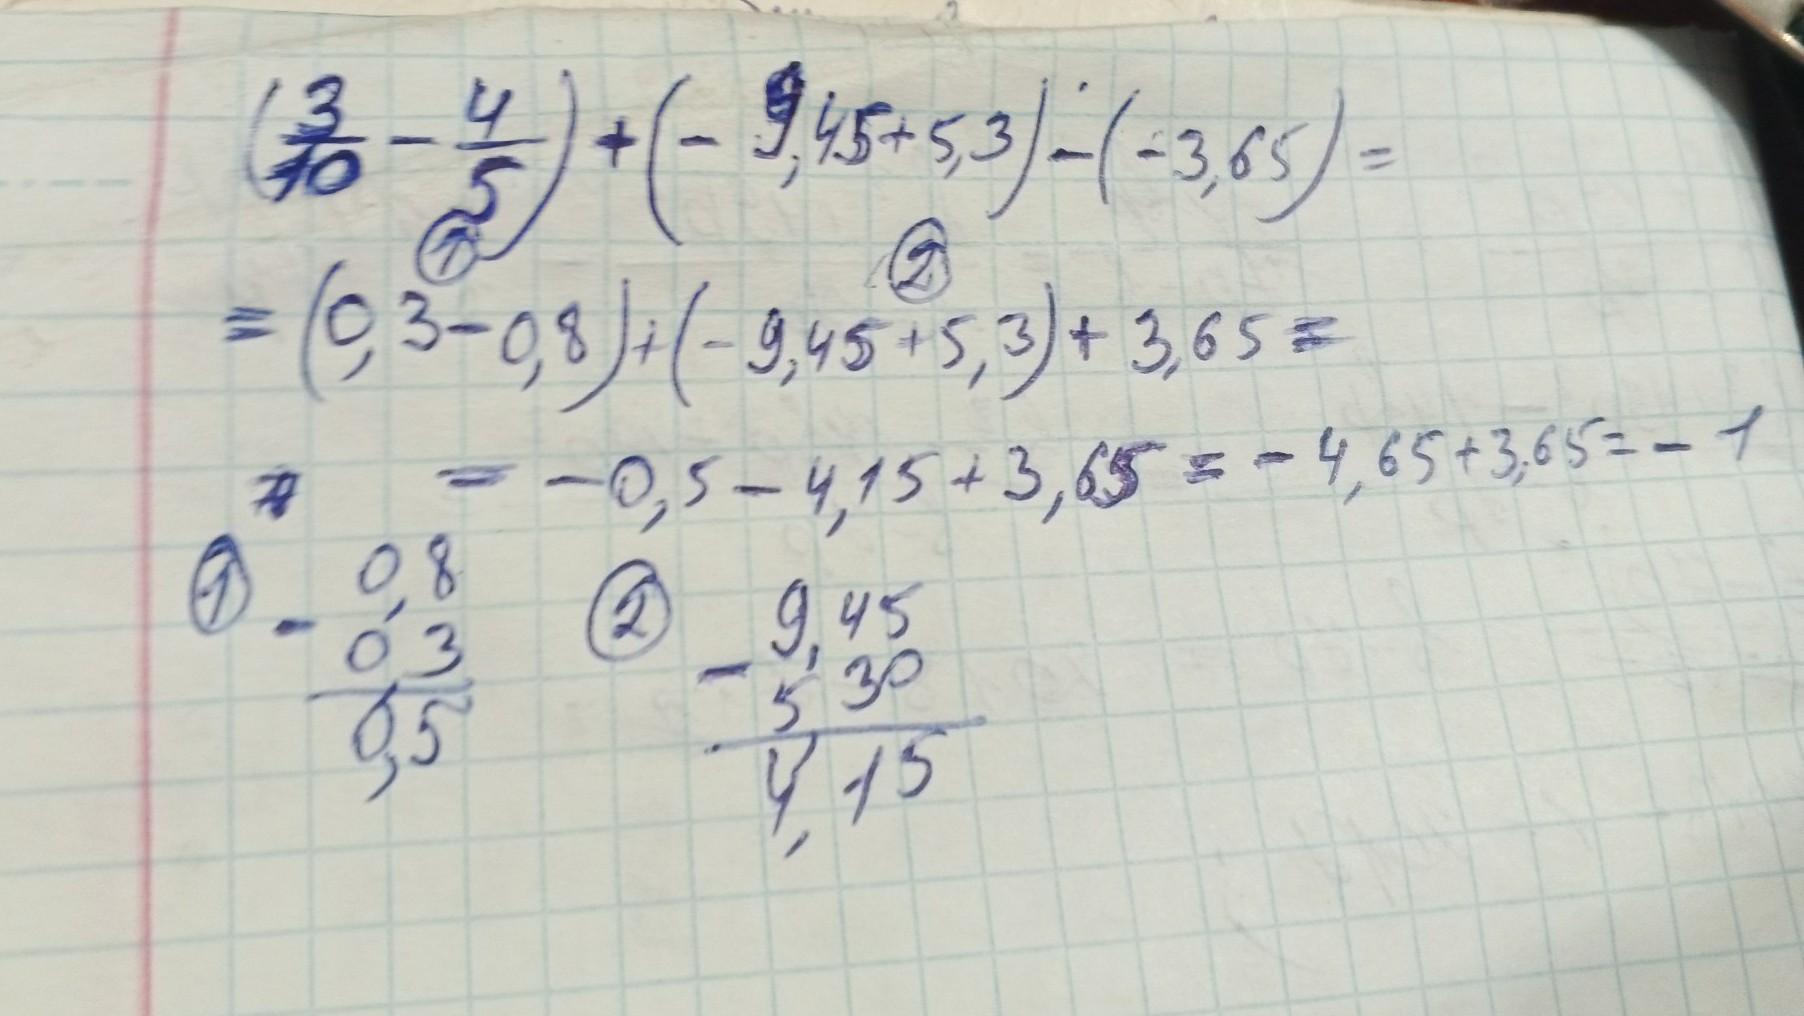 (3/10 - 4/5) + (- 9,45 + 5,3) - (-3,65) =
① ②
= (0,3 - 0,8) + (- 9,45 + 5,3) + 3,65 =
= - 0,5 - 4,15 + 3,65 = - 4,65 + 3,65 = - 1
① - 0,8 ② - 9,45
0 3 5 30
0,5 4,15